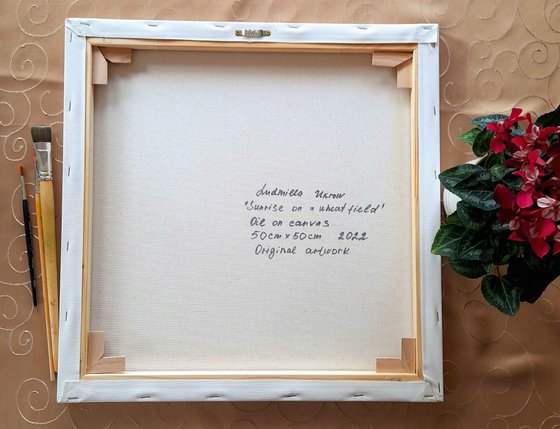 Ludmilla Ukrow
"Sunrise on a wheat field"
Oil on canvas
50cm x 50cm 2022
Original artwork